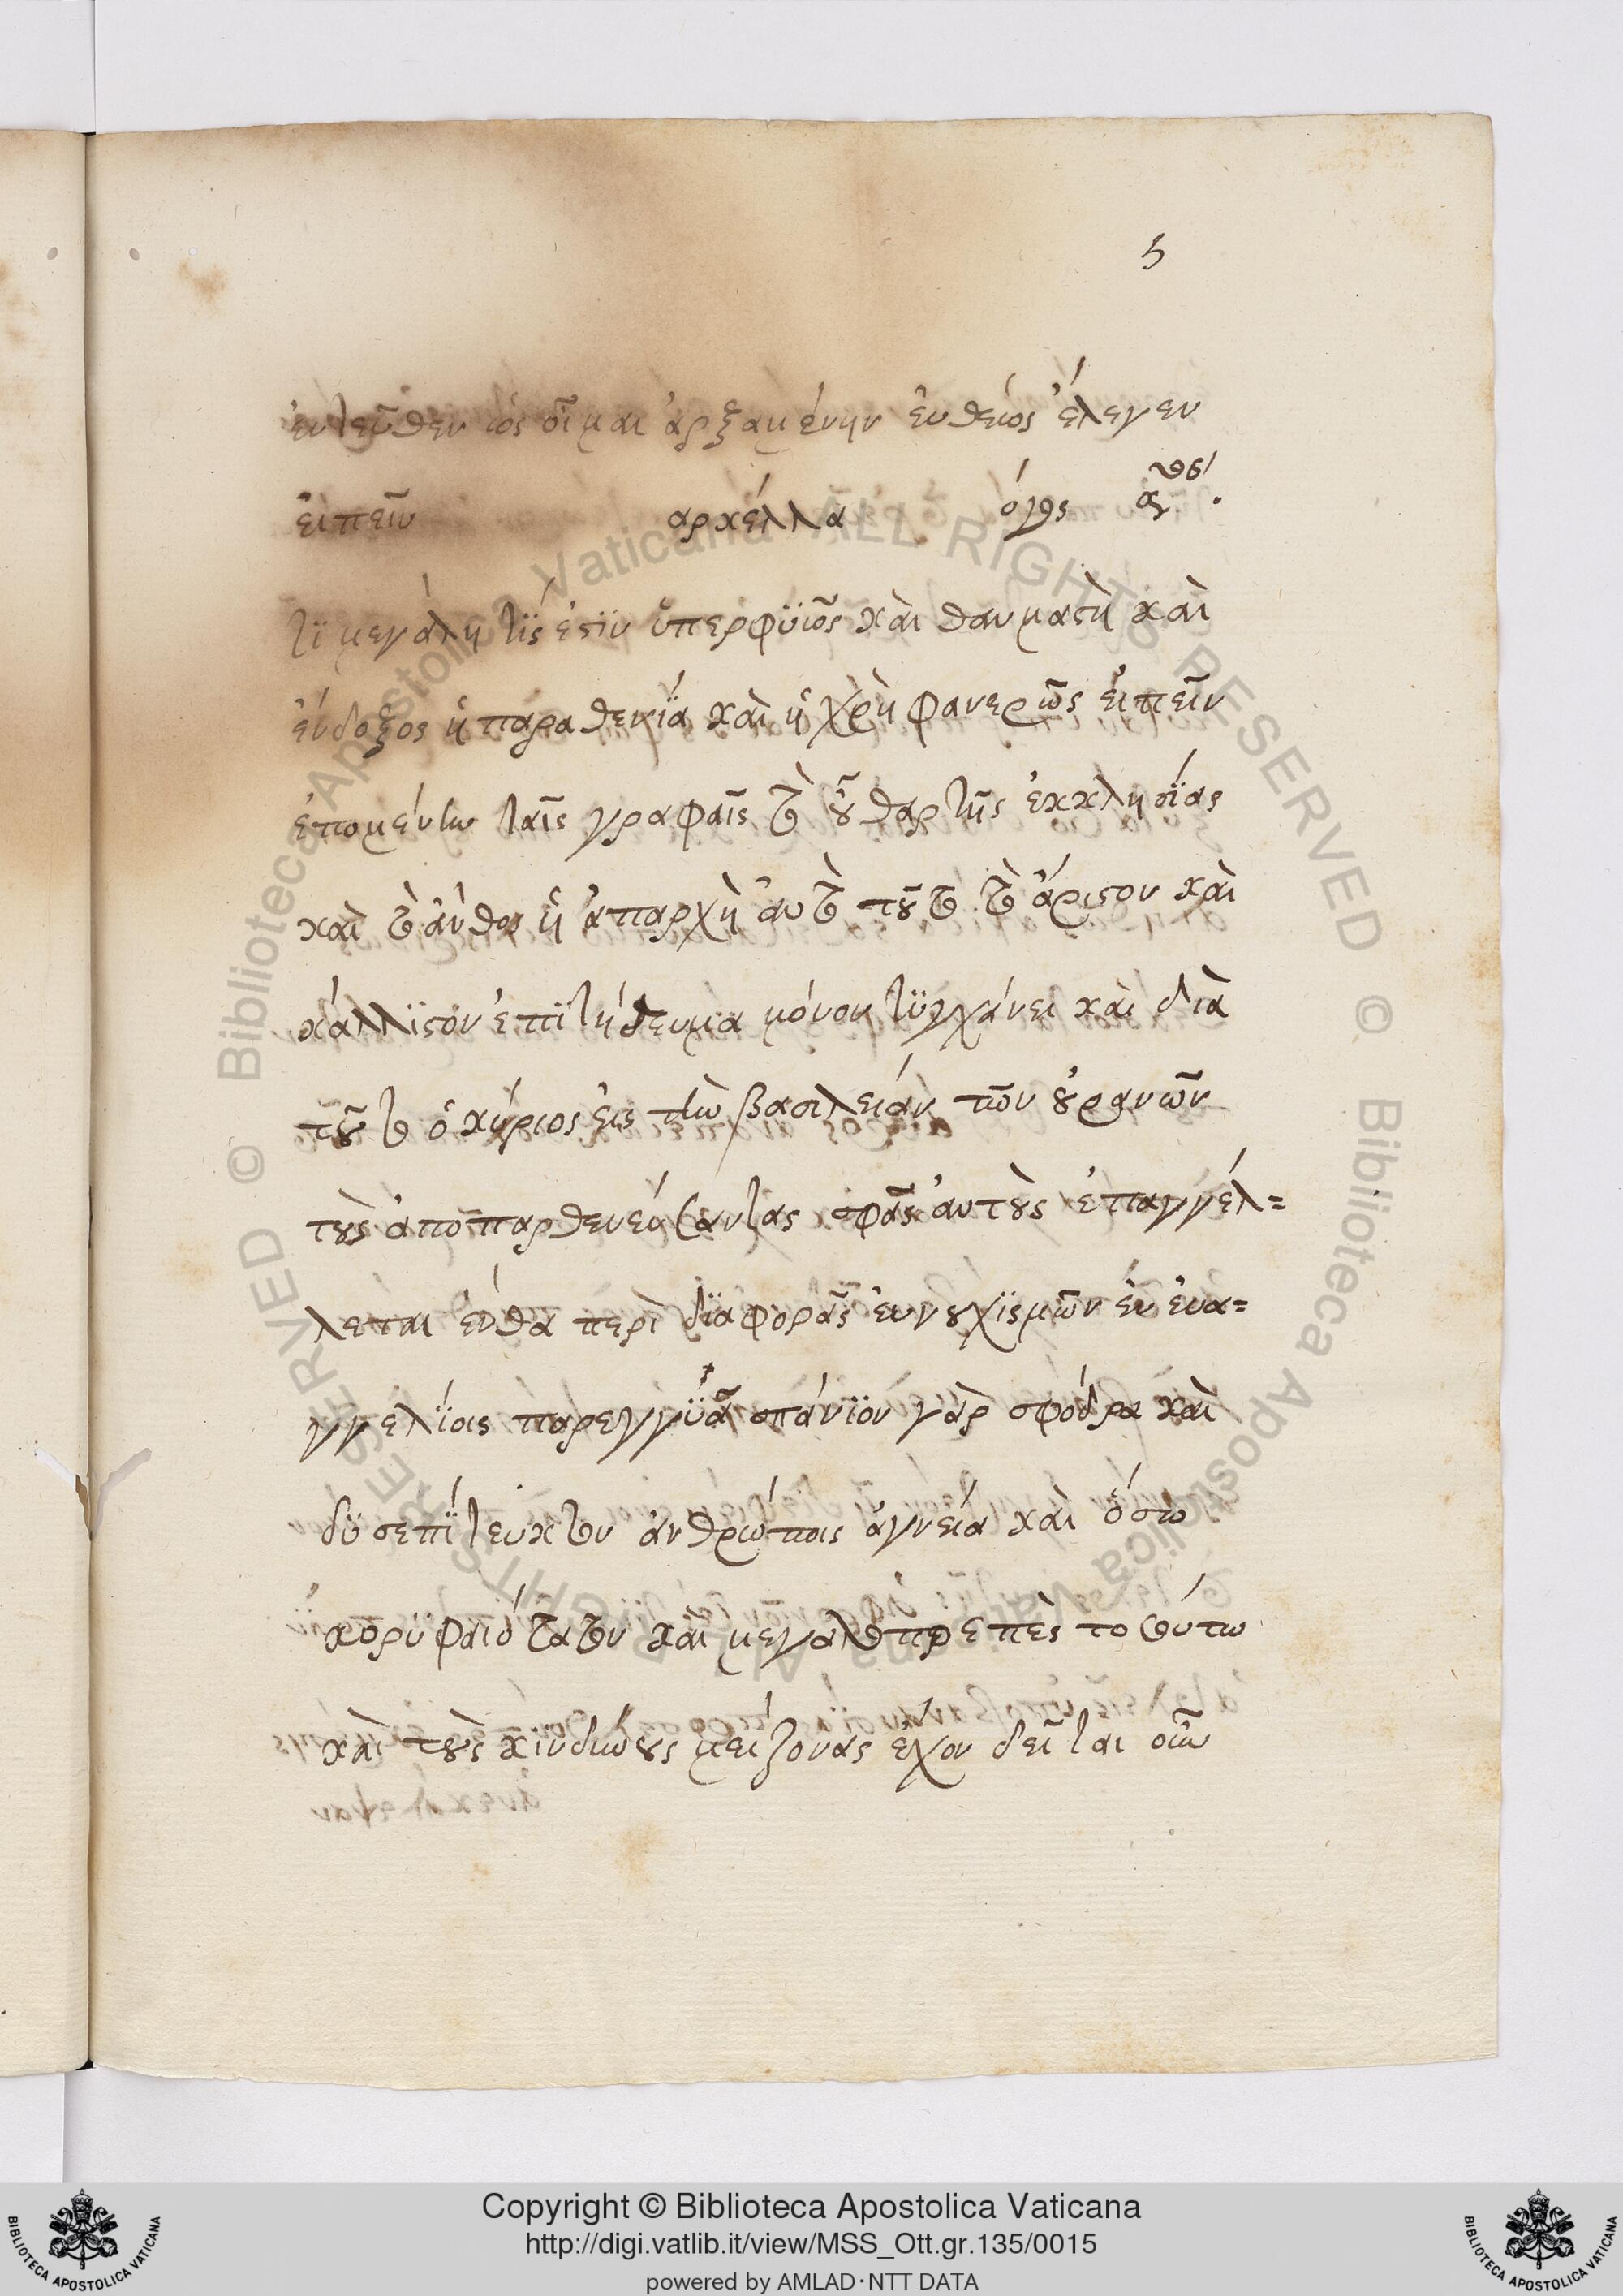 5
ἐντεῦθεν ὡς οἶμαι ἀρξαμένην ἐυθέως ἔλεγεν
ἐιπεῖν αρχέλλα όγος
τΐ μεγάλη τΐς ἐστϊν ὑπερφϋῶς καὶ θαυμαστὴ καὶ
ένδοξος ἡ παραθενΐα καὶ ἡ χρὴ φανερῶς ἐιπεῖν
ἑπομέντω ταῖς γραφαῖς τὸ οὖθαρ τῆς ἐκκλησΐας
καὶ τὸ ἄνθος ἡ ἀπαρχὴ ἀυτὸ τοῦτο τὸ ἄριστον καὶ
κάλλϊστον ἐπϊτήδευμα μόνον τϋγχάνει καὶ διὰ
τοῦτο ὁ κύριος ἐις τὴν βασιλείαν τῶν οὐρανῶν
τοὺς ἀποπαρθενεύσαντας σφᾶς ἀυτοὺς ἐπαγγέλ=
λεται ἔνθα περὶ δϊαφορᾶς ἐυνουχϊσμῶν ἐν ἐυα=
γγελΐοις παρεγγϋᾶ σπάνϊον γὰρ σφόδρα καὶ
δϋσεπΐτευκτον ἀνθρώποις ἁγνεία καὶ ὅσω
κορϋφαιότατον καὶ μεγαλοπρεπὲς τοσούτω
καὶ τοὺς κϊνδύνους μείζονας ἔχον δεῖται οἷν
Copyright © Biblioteca Apostolica Vaticana
http://digi.vatlib.it/view/MSS_Ott.gr.135/0015
powered by AMLAD·NTT DATA
BIBLIOTECA APOSTOLICA VATICANA
BIBLIOTECA APOSTOLICA VATICANA
© Biblioteca Apostolica Vaticana ALL RIGHTS RESERVED © Biblioteca Apostolica Vaticana ALL RIGHTS RESERVED